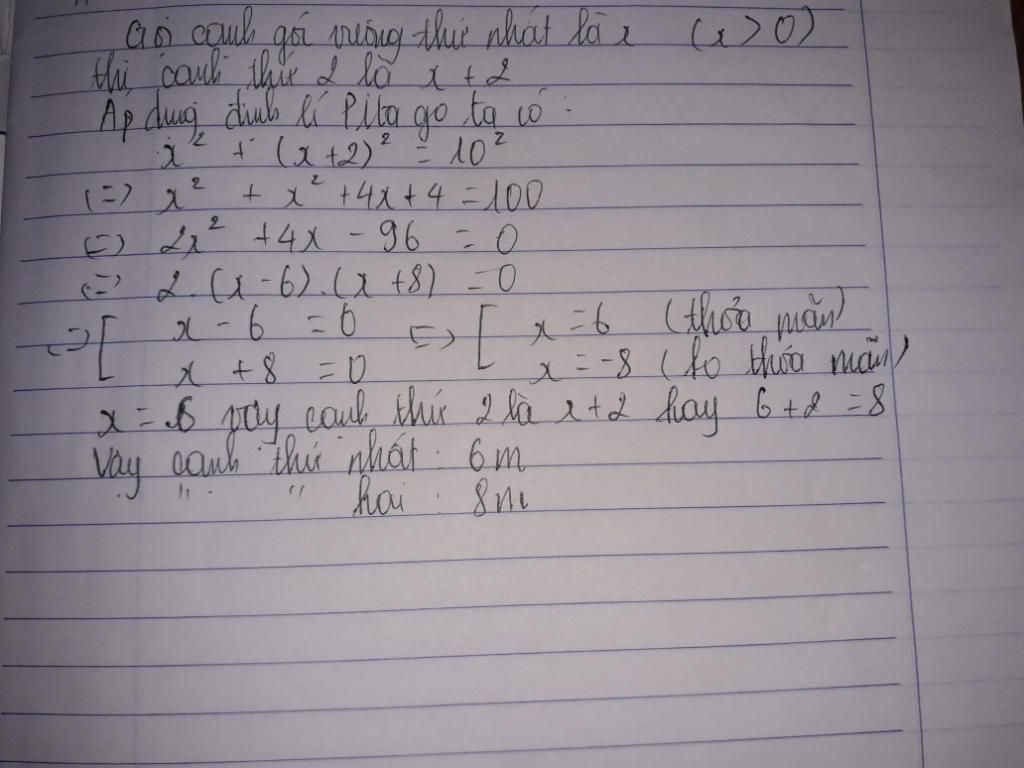 Gọi cạnh góc vuông thứ nhất là x (x > 0)
thì cạnh thứ 2 là x + 2
Áp dụng định lí Pitago ta có :
x² + (x+2)² = 10²
(=) x² + x² + 4x + 4 = 100
(=) 2x² + 4x - 96 = 0
(=) 2.(x-6).(x+8) = 0
(=) [ x - 6 = 0 (=) [ x = 6 (thỏa mãn)
x + 8 = 0 x = -8 (ko thỏa mãn)
x = 6 vậy cạnh thứ 2 là x+2 hay 6+2 = 8
Vậy cạnh thứ nhất : 6m
" " hai : 8m